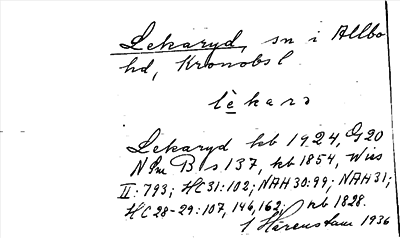 Lekaryd, sn i Allbo
hd, Kronobs l.
lèkarɔ
Lekaryd kb 1924, G20
NPm B s. 137, kb 1854, Wies
II: 793; HC31:102; NAH30:99; NAH31;
HC28-29:107, 146, 162; kb 1828.
J Härenstam 1936